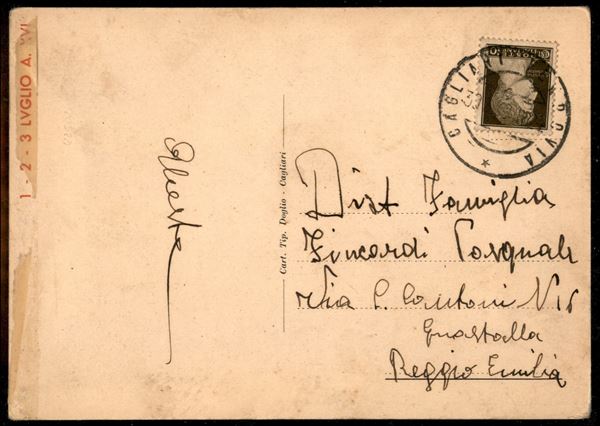 1 - 2 - 3 LVGLIO A. XVI
Cart. Tip. Doglio - Cagliari
CAGLIARI
Dist Famiglia
Pasquale
Via C. Cantoni N 16
Guastalla
Reggio Emilia